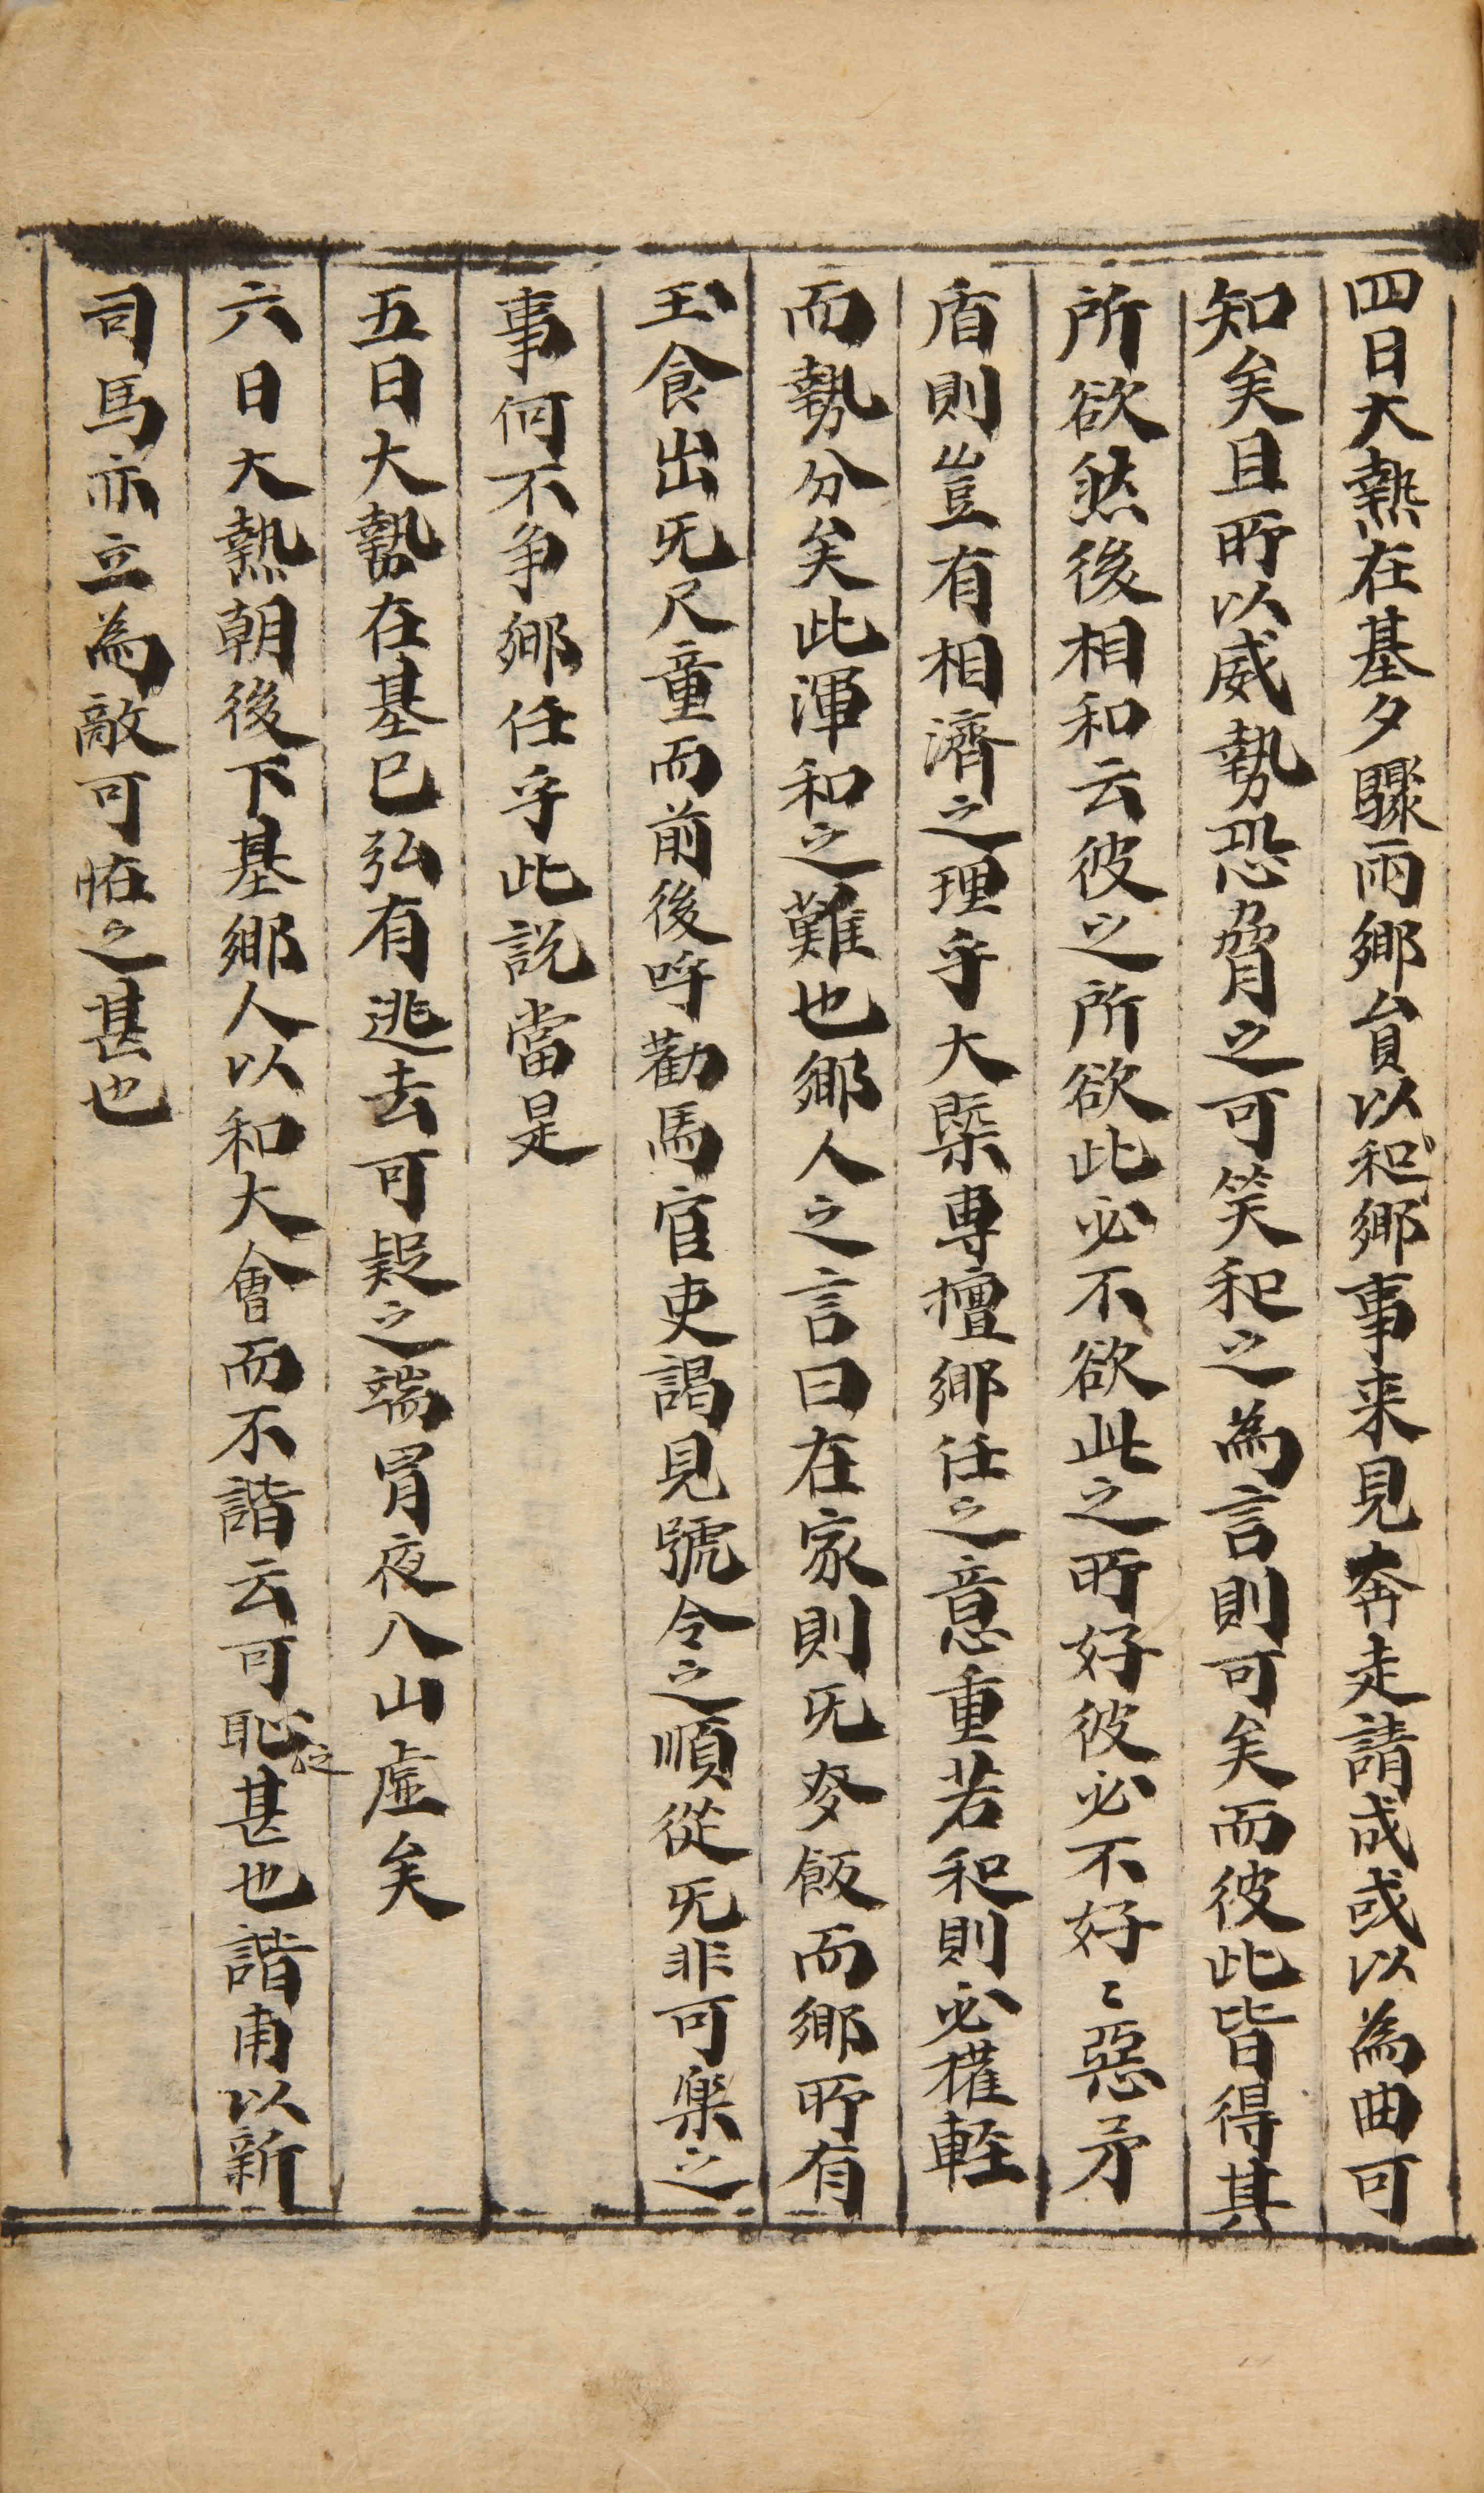 四日大熱在基夕驟雨鄉貟以和鄉事来見奔走請成或以為曲可
知矣且所以威勢恐脅之可笑和之為言則可矣而彼此皆得其
所欲然後相和云彼之所欲此必不欲此之所好彼必不好〻惡矛
盾則豈有相濟之理乎大槩專擅鄉任之意重若和則必權軽
而勢分矣此渾和之難也鄉人之言曰在家則旡麥飯而鄉所有
玉食出旡尺童而前後呼勸馬官吏謁見號令之順從旡非可樂之
事何不争鄉任乎此説當是
五日大勢在基已弘有逃去可疑之端冐夜八山虛矣
六日大熱朝後下基鄉人以和大會而不諧云可恥甚也諧甫以新
司馬亦立為敵可恠之甚也